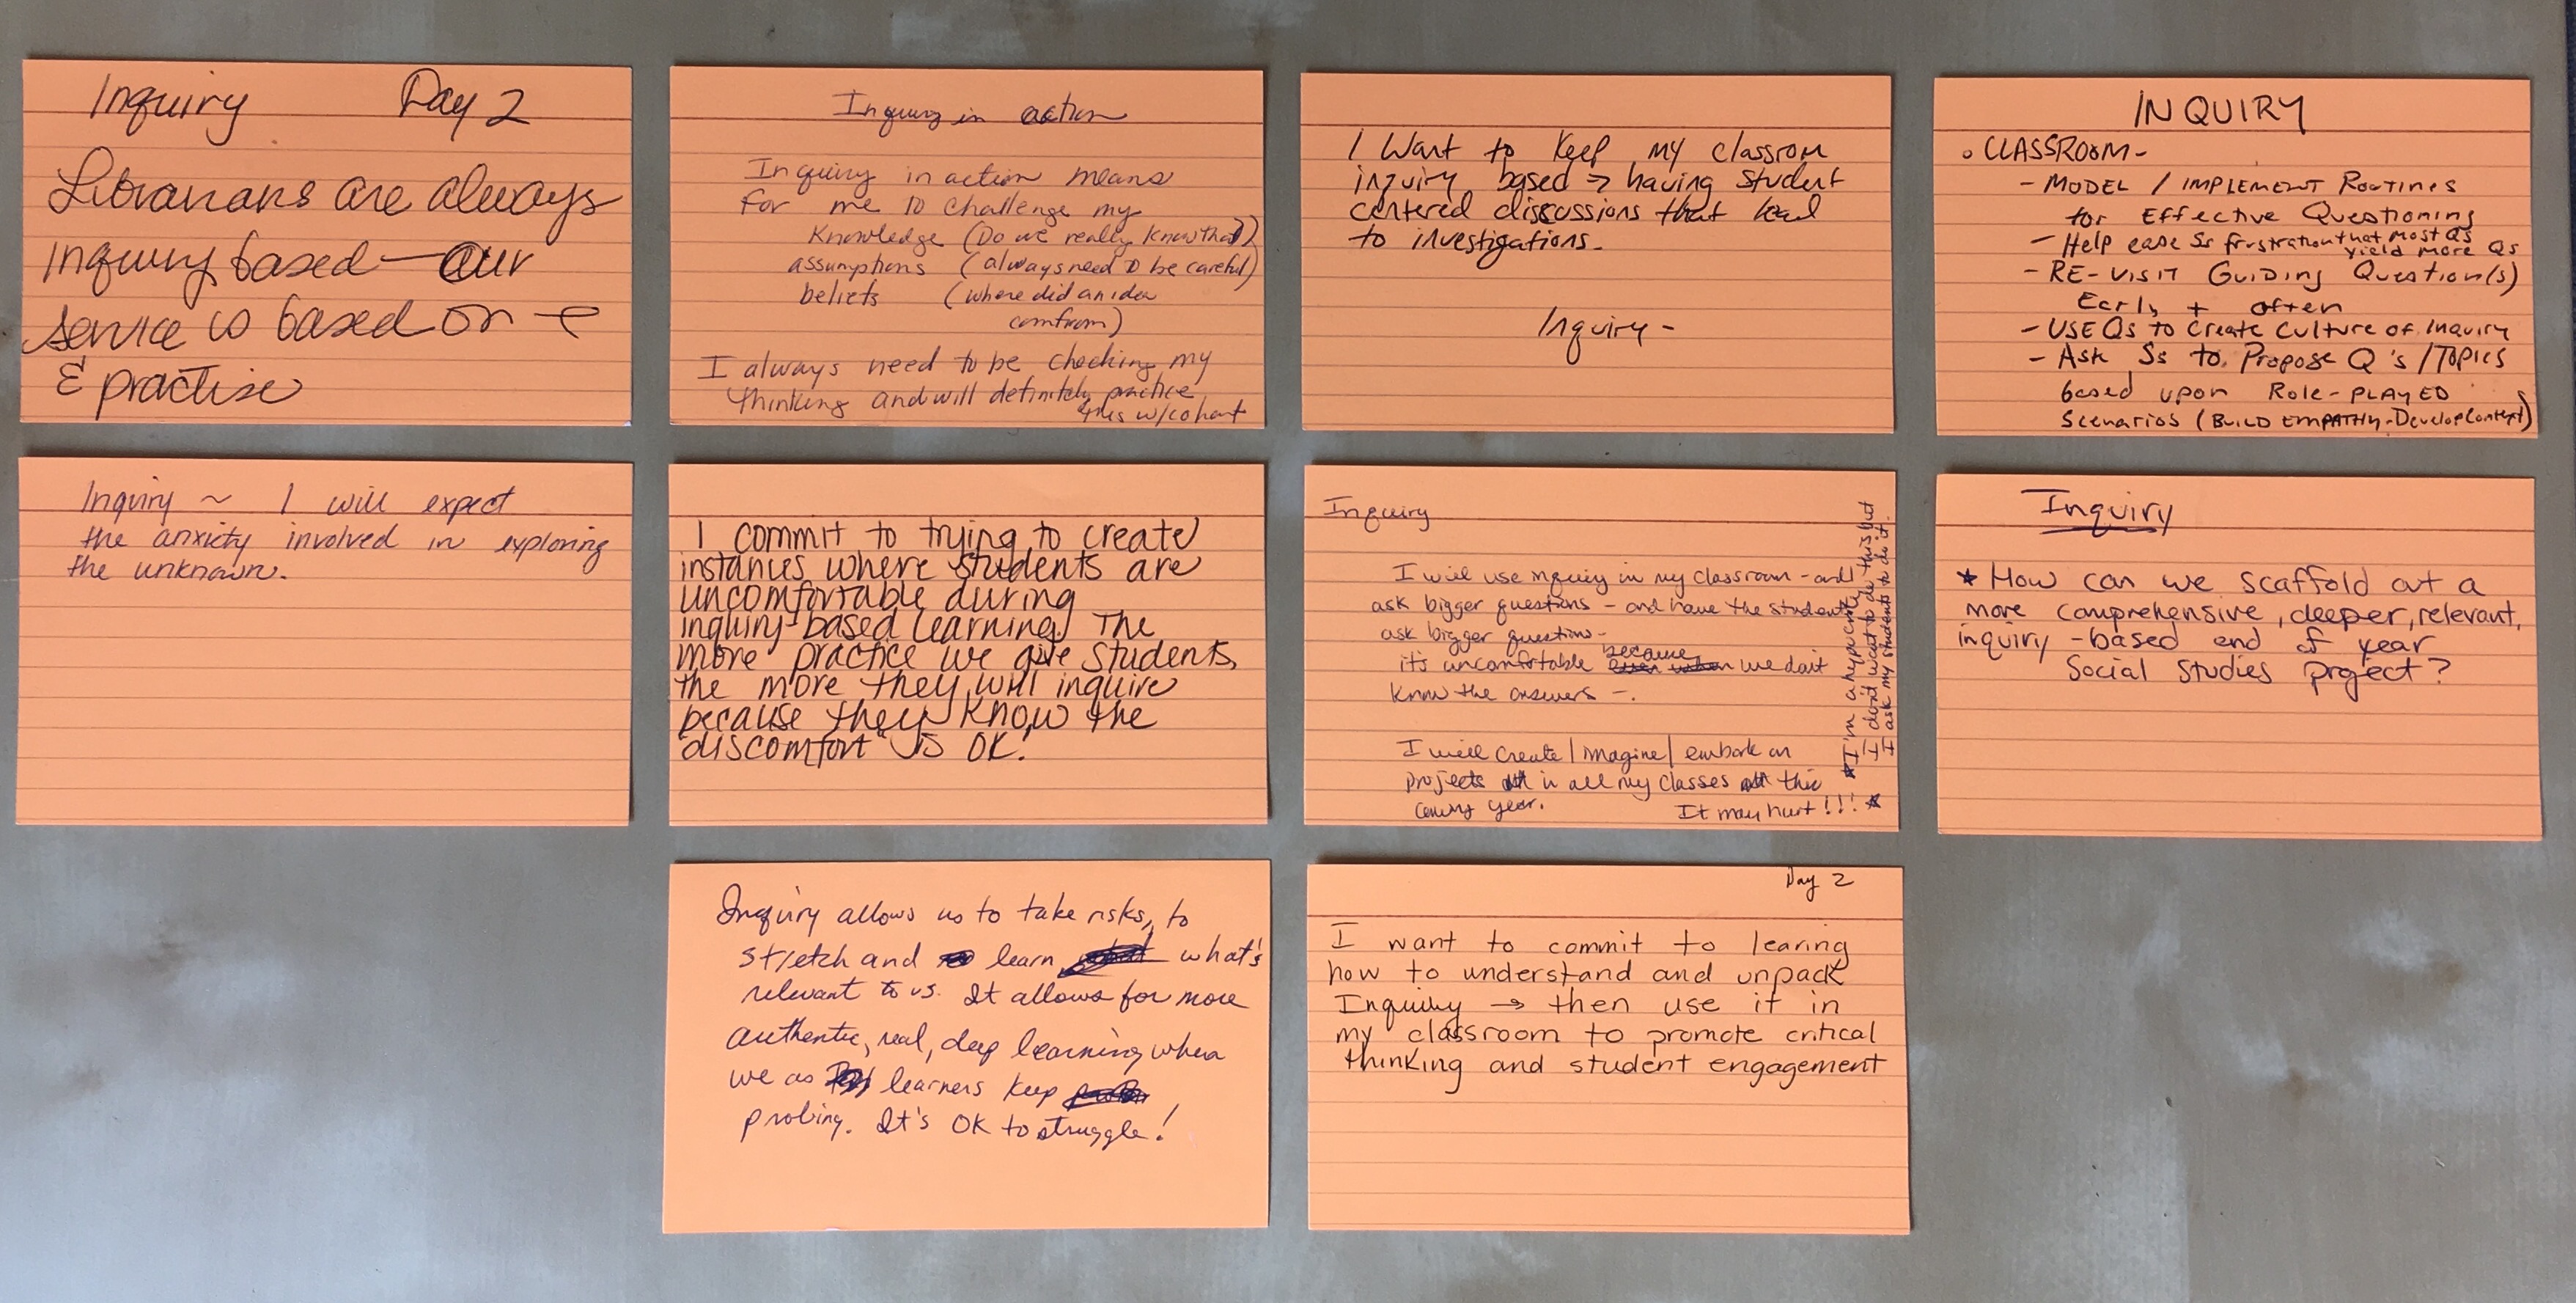 Inquiry Day 2
Librarians are always
inquiry based — our
service is based on
& practise
Inquiry in action
Inquiry in action means
for me to challenge my
knowledge (Do we really know that?)
assumptions (always need to be careful)
beliefs (where did an idea
comfrom)
I always need to be checking my
thinking and will definitely practice
this w/cohort
I want to keep my classrom
inquiry based → having student
centered discussions that lead
to investigations.
Inquiry -
INQUIRY
• CLASSROOM -
- MODEL / IMPLEMENT Routines
for Effective Questioning
- Help ease Ss frustration that most Qs
yield more Qs
- RE-VISIT Guiding Question(s)
Early + often
- USE Qs to Create Culture of Inquiry
- Ask Ss to Propose Q's / Topics
based upon Role-PLAYED
Scenarios (BUILD EMPATHY - Develop Context)
Inquiry ~ I will expect
the anxiety involved in exploring
the unknown.
I commit to trying to create
instances where students are
uncomfortable during
inquiry-based learning. The
more practice we give students,
the more they will inquire
because they know the
"discomfort" is OK!
Inquiry
I will use inquiry in my classroom - and
ask bigger questions - and have the students
ask bigger question -
it's uncomfortable because we don't
know the answers -.
I will create / imagine / embark on
projects in all my classes this
coming year. It may hurt!!! *
* I'm a hypocrite
I don't want to do this but
I ask my students to do it.
Inquiry
* How can we scaffold out a
more comprehensive, deeper, relevant,
inquiry-based end of year
Social Studies project?
Inquiry allows us to take risks, to
stretch and learn what's
relevant to us. It allows for more
authentic, real, deep learning when
we as learners keep
probing. It's OK to struggle!
Day 2
I want to commit to learing
how to understand and unpack
Inquiry → then use it in
my classroom to promote critical
thinking and student engagement